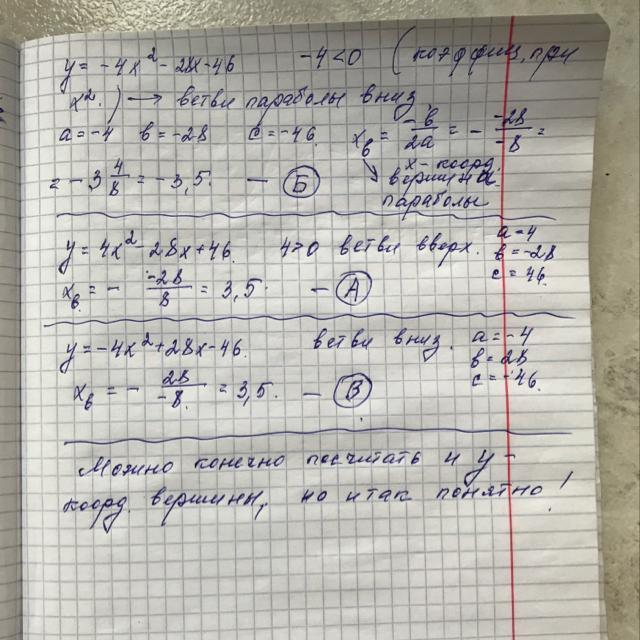 y = -4x² - 28x - 46 -4 < 0 (коэффиц. при
x².) → ветви параболы вниз
a = -4 в = -28 c = -46. xв = -в/2a = - -28/-8 =
= -3 4/8 = -3,5. — Б x - коорд. вершина параболы
y = 4x² - 28x + 46. 4>0 ветви вверх. a = 4
в = -28
c = 46.
xв = - -28/8 = 3,5. — А
y = -4x² + 28x - 46. ветви вниз. a = -4
в = 28
c = -46.
xв = - 28/-8. = 3,5. — В
Можно конечно посчитать и y -
коорд. вершины, но итак понятно!